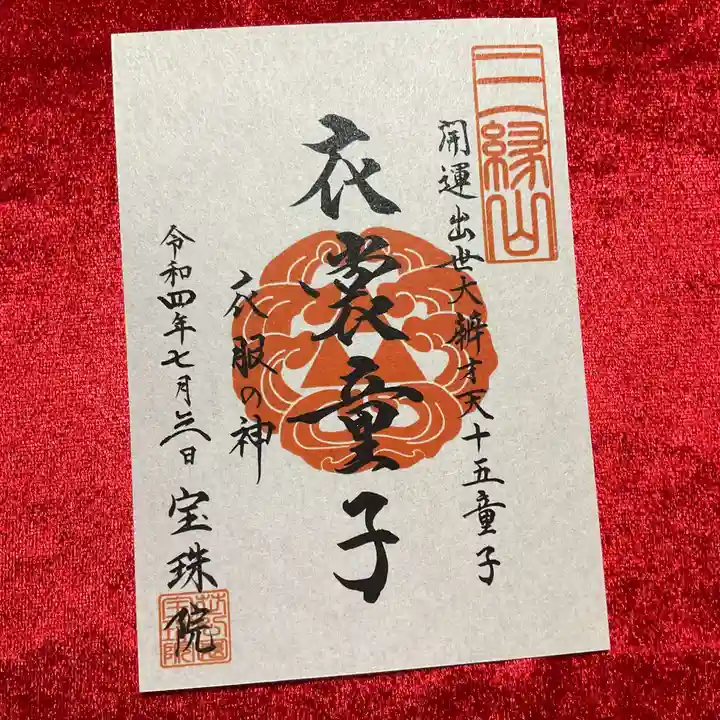 三縁山
開運出世大辨才天十五童子
衣裳童子
衣服の神
令和四年七月日 宝珠院